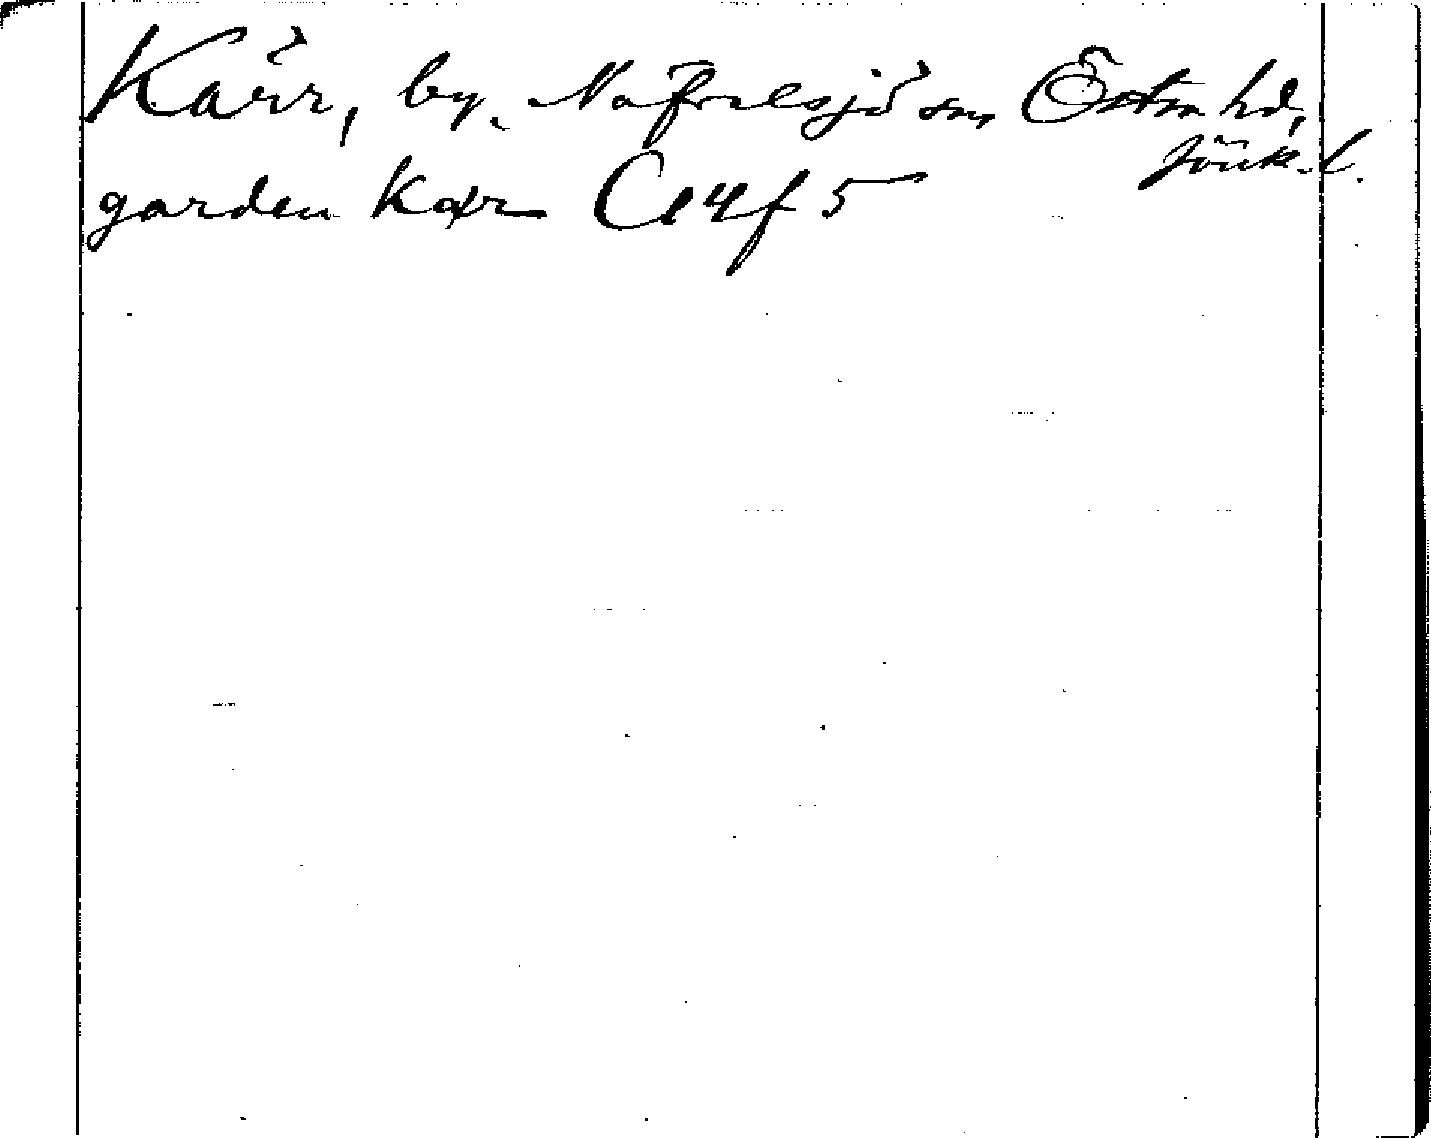 Kärr, by. Näfvelsjö sn, Östra hd,
Jönk. l.
garden Kær C 14 f 5